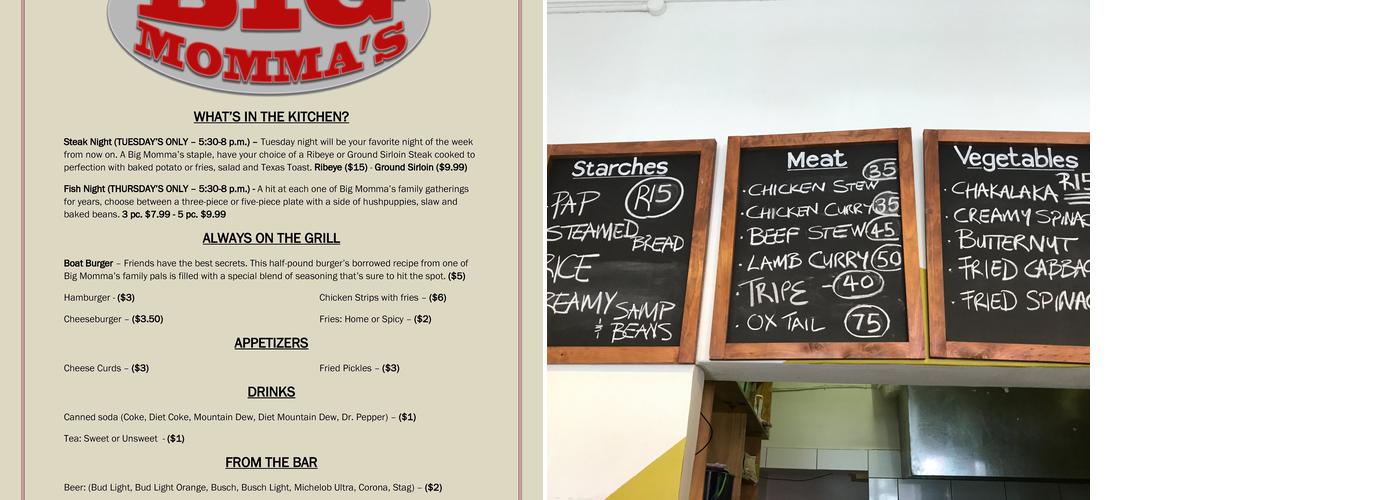 BIG
MOMMA'S
WHAT'S IN THE KITCHEN?
Steak Night (TUESDAY'S ONLY – 5:30-8 p.m.) – Tuesday night will be your favorite night of the week
from now on. A Big Momma's staple, have your choice of a Ribeye or Ground Sirloin Steak cooked to
perfection with baked potato or fries, salad and Texas Toast. Ribeye ($15) - Ground Sirloin ($9.99)
Fish Night (THURSDAY'S ONLY – 5:30-8 p.m.) - A hit at each one of Big Momma's family gatherings
for years, choose between a three-piece or five-piece plate with a side of hushpuppies, slaw and
baked beans. 3 pc. $7.99 - 5 pc. $9.99
ALWAYS ON THE GRILL
Boat Burger – Friends have the best secrets. This half-pound burger's borrowed recipe from one of
Big Momma's family pals is filled with a special blend of seasoning that's sure to hit the spot. ($5)
Hamburger - ($3)
Chicken Strips with fries – ($6)
Cheeseburger – ($3.50)
Fries: Home or Spicy – ($2)
APPETIZERS
Cheese Curds – ($3)
Fried Pickles – ($3)
DRINKS
Canned soda (Coke, Diet Coke, Mountain Dew, Diet Mountain Dew, Dr. Pepper) – ($1)
Tea: Sweet or Unsweet - ($1)
FROM THE BAR
Beer: (Bud Light, Bud Light Orange, Busch, Busch Light, Michelob Ultra, Corona, Stag) – ($2)
Starches
PAP R15
STEAMED
BREAD
RICE
REAMY SAMP
& BEANS
Meat
· CHICKEN STEW 35
· CHICKEN CURRY 35
· BEEF STEW 45
· LAMB CURRY 50
· TRIPE - 40
· OX TAIL 75
Vegetables
· CHAKALAKA R15
· CREAMY SPINAC
· BUTTERNUT
· FRIED CABBAG
· FRIED SPINAC